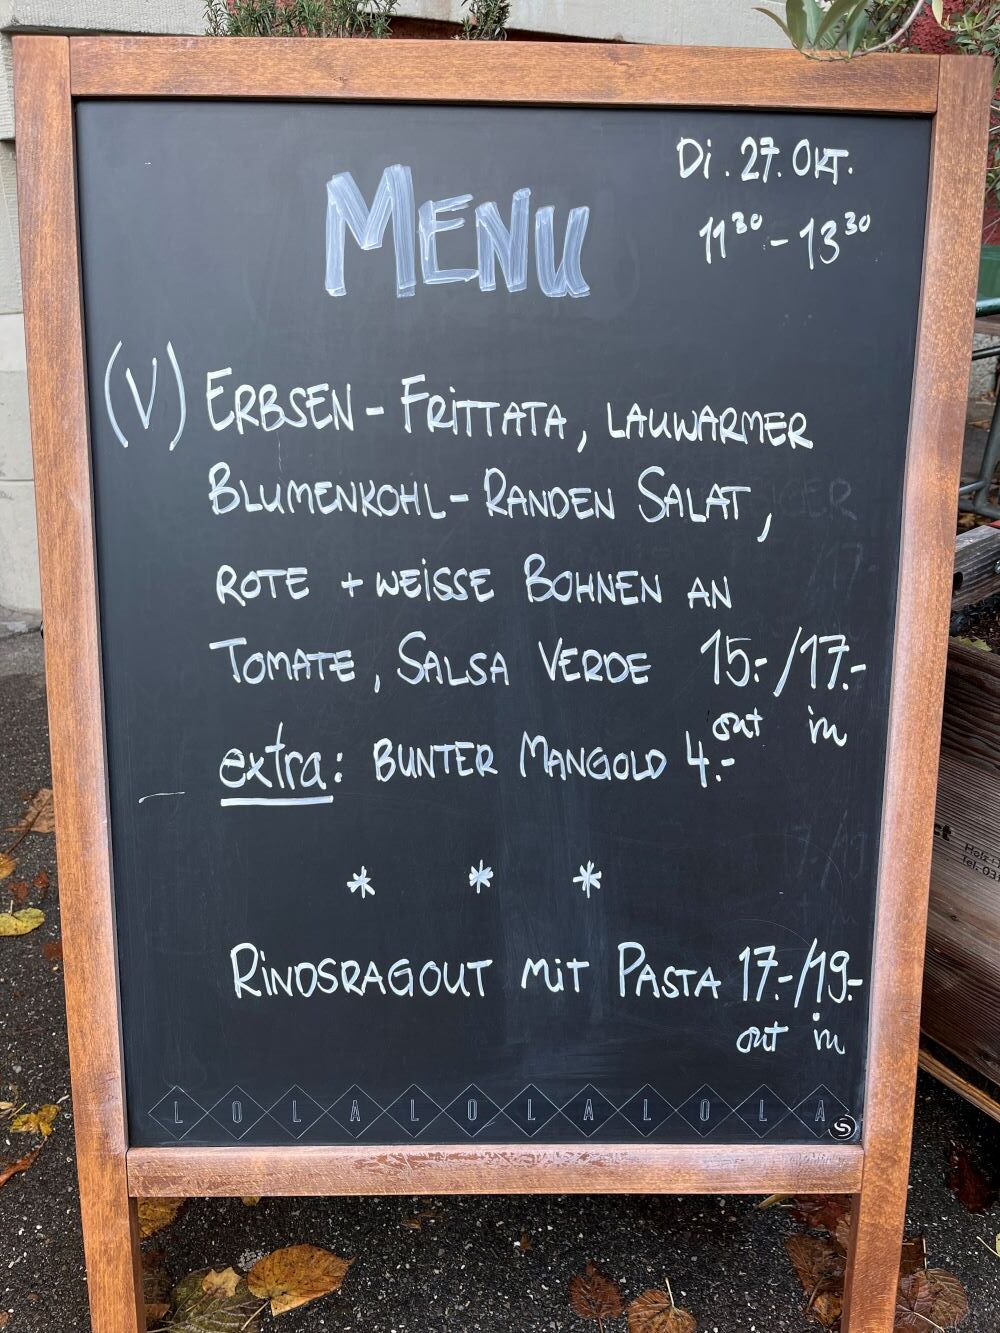 MENU
Di. 27. OKT.
11³⁰ - 13³⁰
(V) ERBSEN - FRITTATA, LAUWARMER
BLUMENKOHL - RANDEN SALAT,
ROTE + WEISSE BOHNEN AN
TOMATE, SALSA VERDE 15.-/17.-
out in
extra: BUNTER MANGOLD 4.-
* * *
RINDSRAGOUT MIT PASTA 17.-/19.-
out in
LOLALOLALOLA